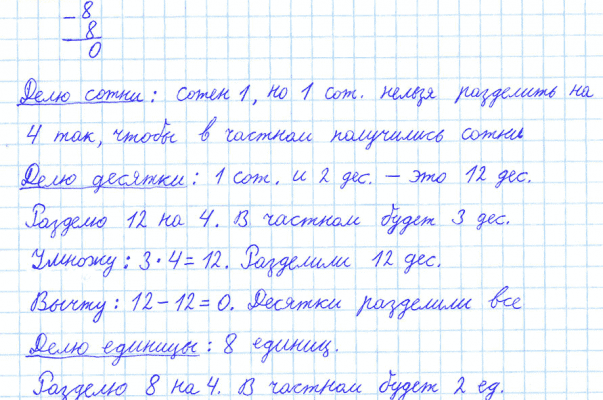 – 8
8
0
Делю сотни: сотен 1, но 1 сот. нельзя разделить на
4 так, чтобы в частном получились сотни
Делю десятки: 1 сот. и 2 дес. – это 12 дес.
Разделю 12 на 4. В частном будет 3 дес.
Умножу: 3·4=12. Разделили 12 дес.
Вычту: 12–12=0. Десятки разделили все
Делю единицы: 8 единиц.
Разделю 8 на 4. В частном будет 2 ед.